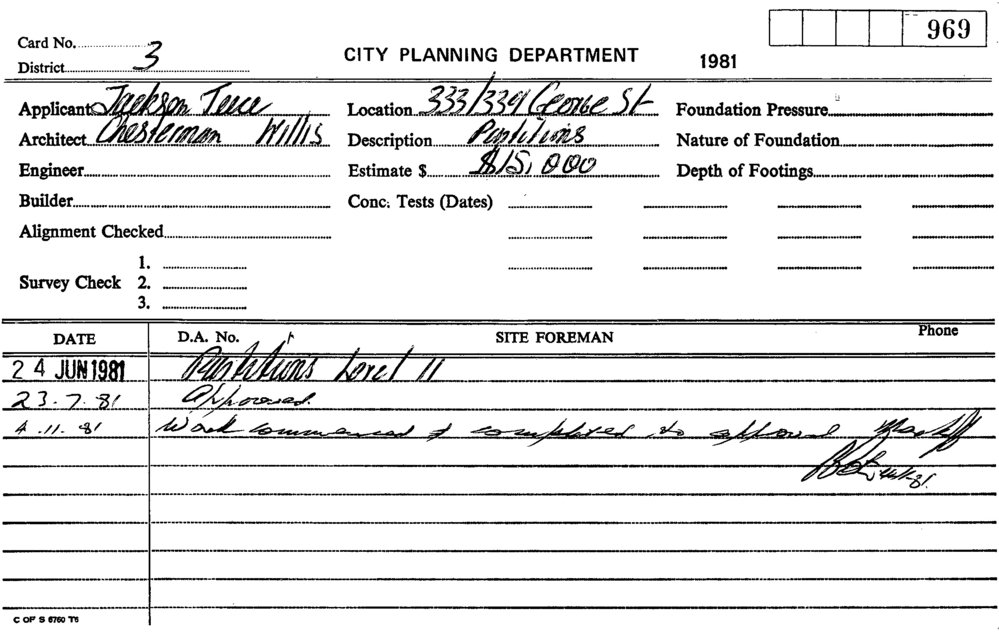 969
Card No.
District 3
CITY PLANNING DEPARTMENT 1981
Applicant Jackson Teece Location 333/339 George St Foundation Pressure
Architect Chesterman Willis Description Partitions Nature of Foundation
Engineer Estimate $ $15,000 Depth of Footings
Builder Conc. Tests (Dates)
Alignment Checked
1.
Survey Check 2.
3.
DATE D.A. No. SITE FOREMAN Phone
24 JUN 1981 Partitions Level 11
23.7.81 Approved.
4.11.81 Work commenced & completed to approval
C OF S 6760 T6